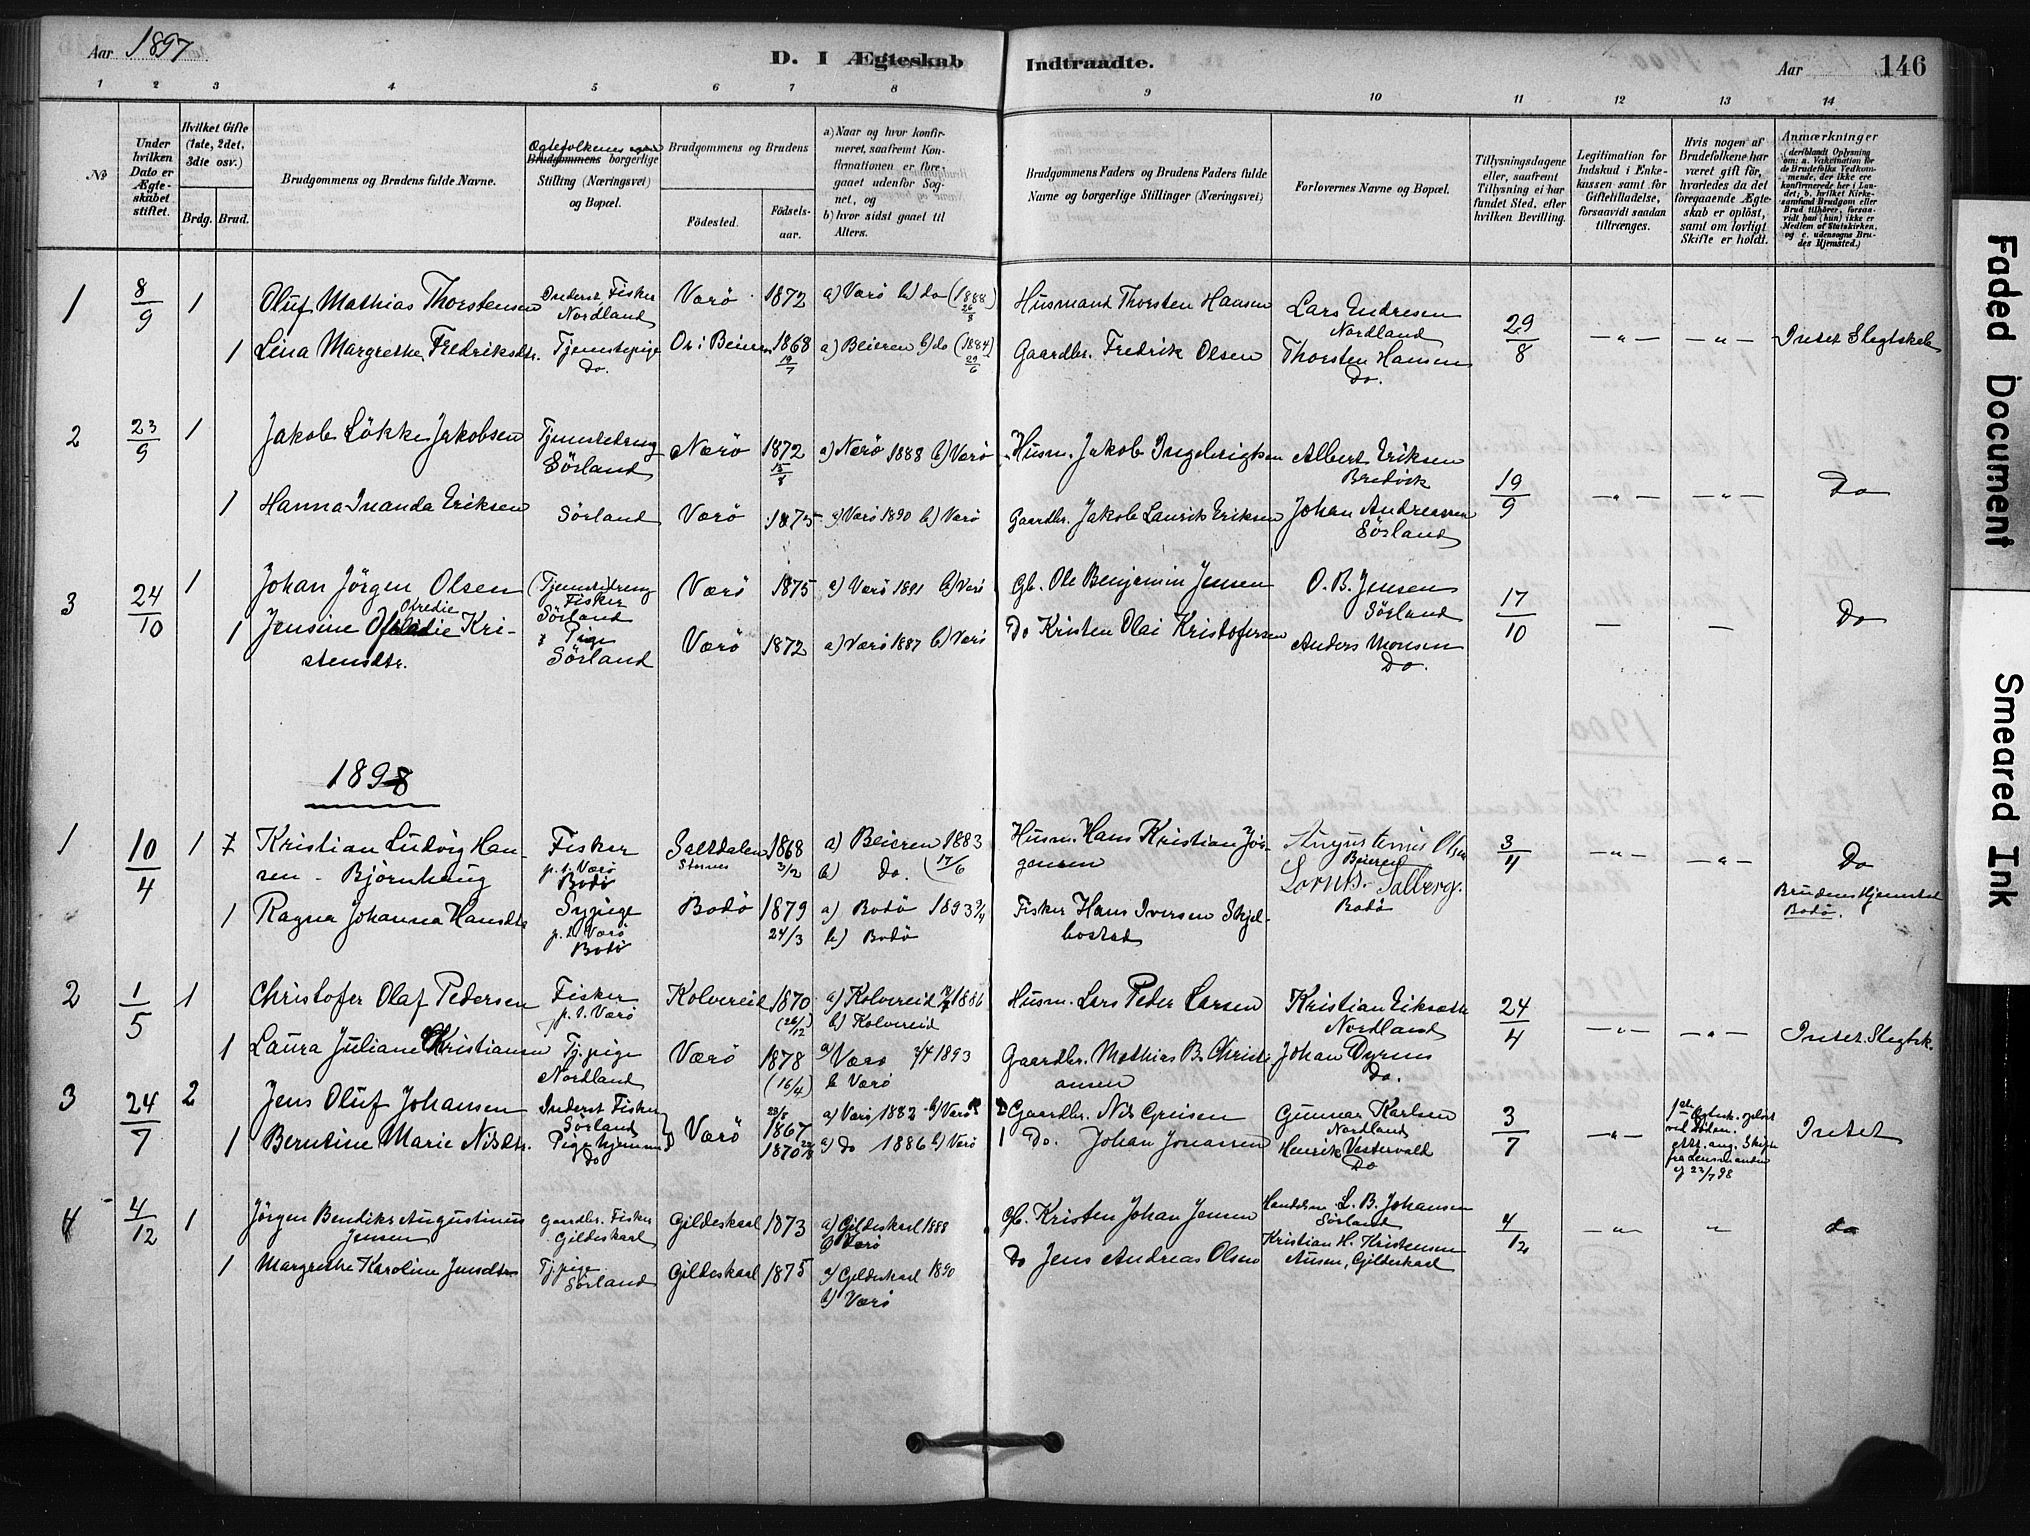 Aar 1897
D. I Ægteskab Indtraadte.
Aar 146
1 2 3 4 5 6 7 8 9 10 11 12 13 14
No
Under hvilken Dato er Ægteskabet stiftet.
Hvilket Gifte (1ste, 2det, 3die osv.)
Brdg. Brud.
Brudgommens og Brudens fulde Navne.
Ægtefolkenes
Brudgommens borgerlige Stilling (Næringsvei) og Bopæl.
Brudgommens og Brudens
Fødested.
Fødselsaar.
a) Naar og hvor konfirmeret, saafremt Konfirmationen er foregaaet udenfor Sognet, og
b) hvor sidst gaaet til Alters.
Brudgommens Faders og Brudens Faders fulde Navne og borgerlige Stillinger (Næringsvei)
Forlovernes Navne og Bopæl.
Tillysningsdagene eller, saafremt Tillysning ei har fundet Sted, efter hvilken Bevilling.
Legitimation for Indskud i Enkekassen samt for Giftetilladelse, forsaavidt saadan tiltrænges.
Hvis nogen af Brudefolkene har været gift før, hvorledes da det foregaaende Ægteskab er opløst, samt om lovligt Skifte er holdt.
Anmærkninger (deriblandt Oplysning om: a. Vakcination for de Brudefolks Vedkommende, der ikke ere konfirmerede her i Landet; b. hvilket Kirkesamfund Brudgom eller Brud tilhører, forsaavidt han (hun) ikke er Medlem af Statskirken, og c. udensogns Brudes Hjemsted.)
1 8/9 1 Oluf Mathias Thorstensen Inderst, Fisker Nordland Værö 1872 a) Værö b) do (1888 26/8) Husmand Thorsten Hansen Lars Endresen Nordland 29/8 — " — — " — Intet Slegtskab
1 Lina Margrethe Fredriksdtr. Tjenstepige Do. Beieren 1868 19/7 a) Beieren b) do (1884) 29/6 Gaardbr. Fredrik Olsen Thorsten Hansen Do.
2 23/9 1 Jakob Lökke Jakobsen Tjenstedreng Sörland Nærö 1872 15/8 a) Nærö 1888 b) Værö Husm. Jakob Ingebrigtsen Albert Eriksen Bredvik 19/9 — " — — " — Do
1 Hanna Inanda Eriksen Sörland Værö 1875 a) Værö 1890 b) Værö Gaardbr. Jakob Laurits Eriksen Johan Andreassen Sörland
3 24/10 1 Johan Jörgen Olsen Tjenstedreng Fisker Sörland Værö 1875 a) Værö 1891 b) Værö Gb. Ole Benjamin Jensen O. B. Jensen Sörland 17/10 — — Do
1 Jensine Ofredie Kristensdtr. Pige Sörland Værö 1872 a) Værö 1887 b) Værö Do Kristen Olai Kristofersen Anders Monsen Do.
1898
1 10/4 1 Kristian Ludvig Hansen - Björnhaug Fisker p. t. Værö Bodö Saltdalen 1868 3/2 a) Beieren 1883 b) do. (17/6 Husm. Hans Kristian Jörgensen Augustinus Olsen Beieren 3/4 — " — — " — Do
1 Ragna Johanna Hansdtr Sypige p. t. Værö Bodö Bodö 1879 24/3 a) Bodö 1893 b) Bodö Fisker Hans Iversen Skjelbostad Lornts Salberg. Bodö Brudens Hjemsted Bodö.
2 1/5 1 Christofer Olaf Pedersen Fisker p. t. Værö Kolvereid 1870 (26/12) a) Kolvereid 1886 b) Kolvereid Husm. Lars Peder Larsen Kristian Nordland 24/4 — " — — " — Intet Slegtsk.
1 Laura Juliane Kristiansen Tj. pige Nordland Værö 1878 (16/4) a) Værö 1893 b Værö Gaardbr. Mathias B. Christiansen Johan Dyrnes Do.
3 24/7 2 Jens Oluf Johansen Inderst Fisker Sörland Værö 1867 a) Værö 1882 b) Værö 2 Gaardbr. Nils Gunnar Karlsen Nordland 3/7 — " — 1ste Ægtsk. oplöst ved Döden. Att. ang. Skifte fra Lensmanden af 23/7 98 Intet
1 Berntine Marie Nilsdtr. Pige hjemme Do 1870 a) do 1886 b) Værö 1 Do. Johan Jonassen Henrik Vestervold Do
4 4/12 1 Jörgen Bendiks Augustinus Jensen Gaardbr. Fisker Gildeskaal Gildeskaal 1873 a) Gildeskaal 1888 b) Værö Gb. Kristen Johan Jensen Handelsm. L. B. Johansen Sörland 4/12 — " — " do
1 Margrethe Karoline Jensdtr Tj. pige Sörland Gildeskaal 1875 a) Gildeskaal 1890 b) Værö Do Jens Andreas Olsen Kristian H. Kristensen Gildeskaal
Faded Document
Smeared Ink